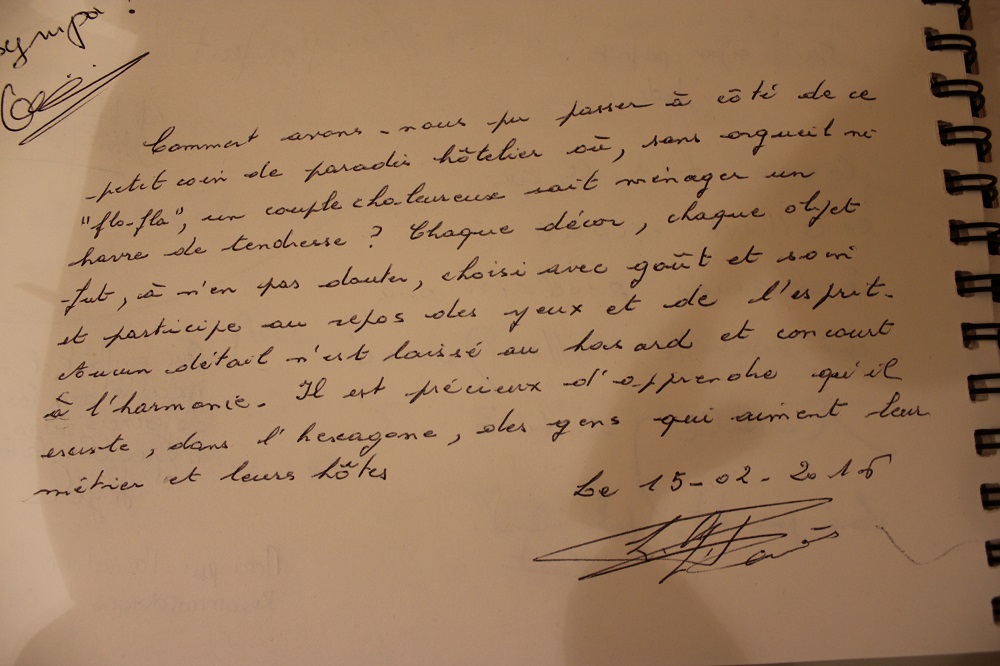 sympa !
Comment avons-nous pu passer à côté de ce
petit coin de paradis hôtelier où, sans orgueil ni
"fla-fla", un couple chaleureux sait ménager un
havre de tendresse ? Chaque décor, chaque objet
fut, à n'en pas douter, choisi avec goût et soin
et participe au repos des yeux et de l'esprit.
Aucun détail n'est laissé au hasard et concourt
à l'harmonie. Il est précieux d'apprendre qu'il
existe, dans l'hexagone, des gens qui aiment leur
métier et leurs hôtes
Le 15-02-2016